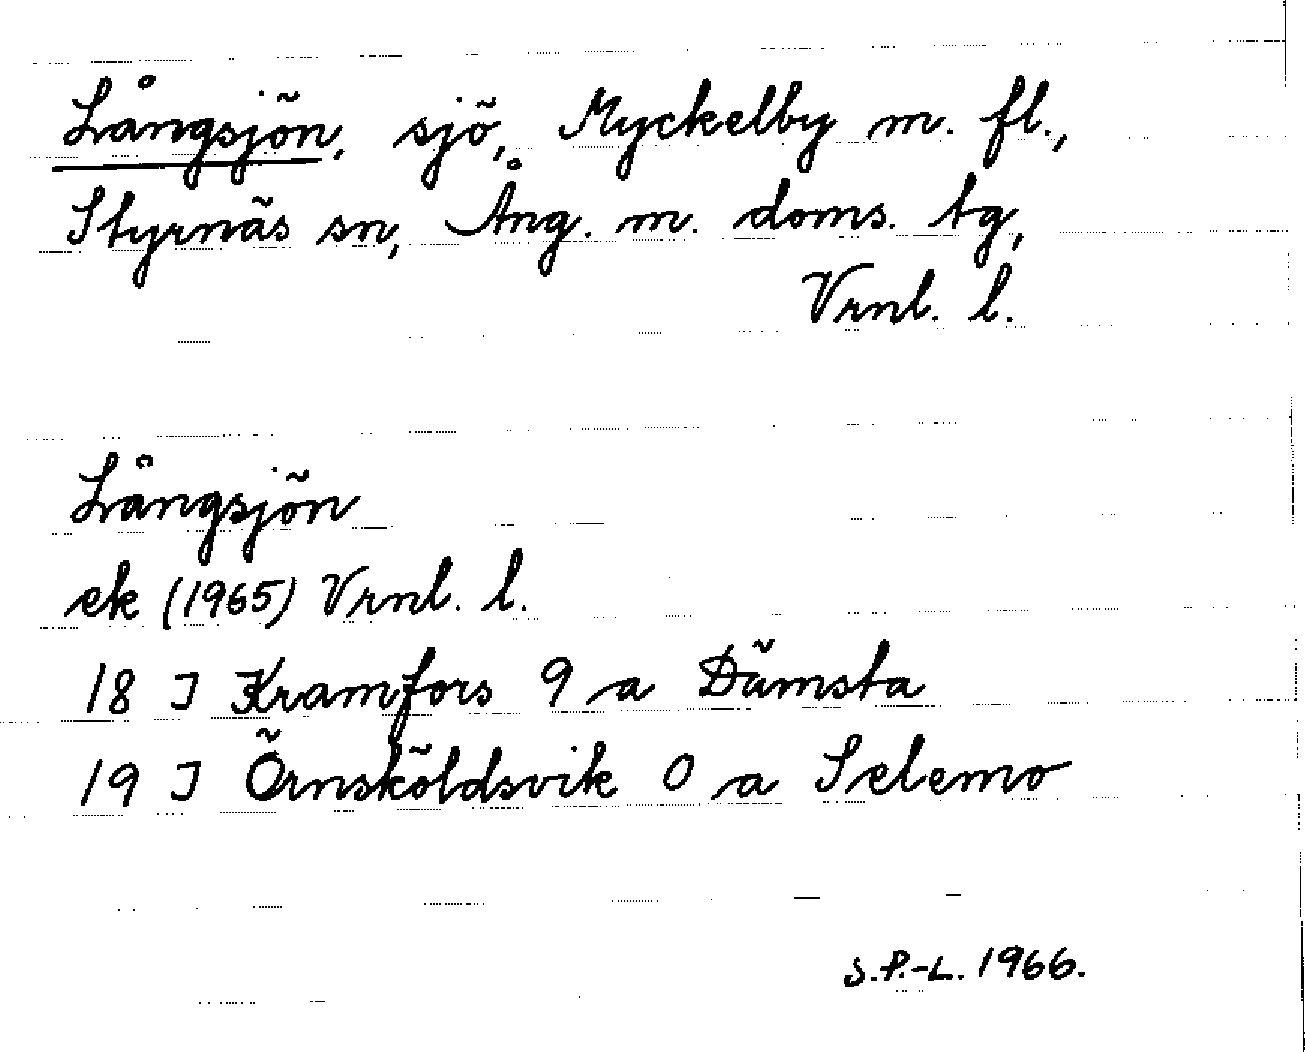 Långsjön, sjö, Myckelby m. fl.,
Styrnäs sn, Ång. m. doms. tg,
Vrnl. l.
Långsjön
ek (1965) Vrnl. l.
18 I Kramfors 9 a Dämsta
19 I Örnsköldsvik 0 a Selemo
S.P.-L. 1966.